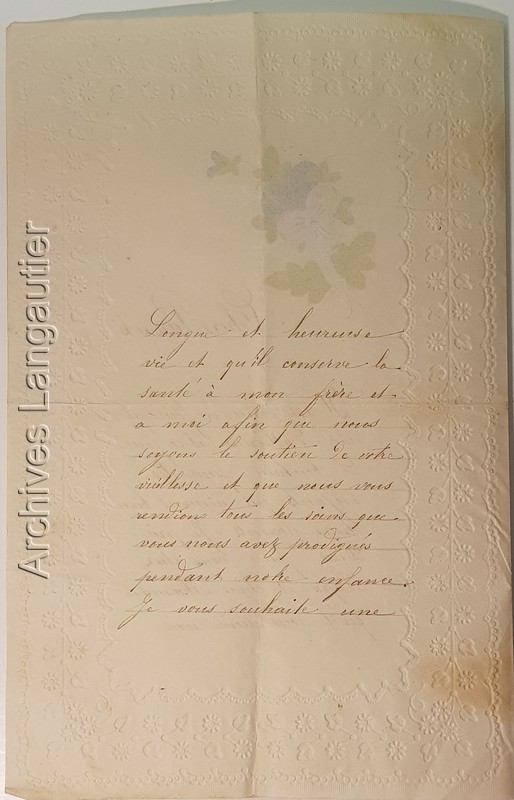 Longue et heureuse
vie et qu'il conserve la
santé à mon frère et
à moi afin que nous
soyons le soutien de votre
vieillesse et que nous vous
rendion tous les soins que
vous nous avez prodigués
pendant notre enfance.
Je vous souhaite une
Archives Langautier